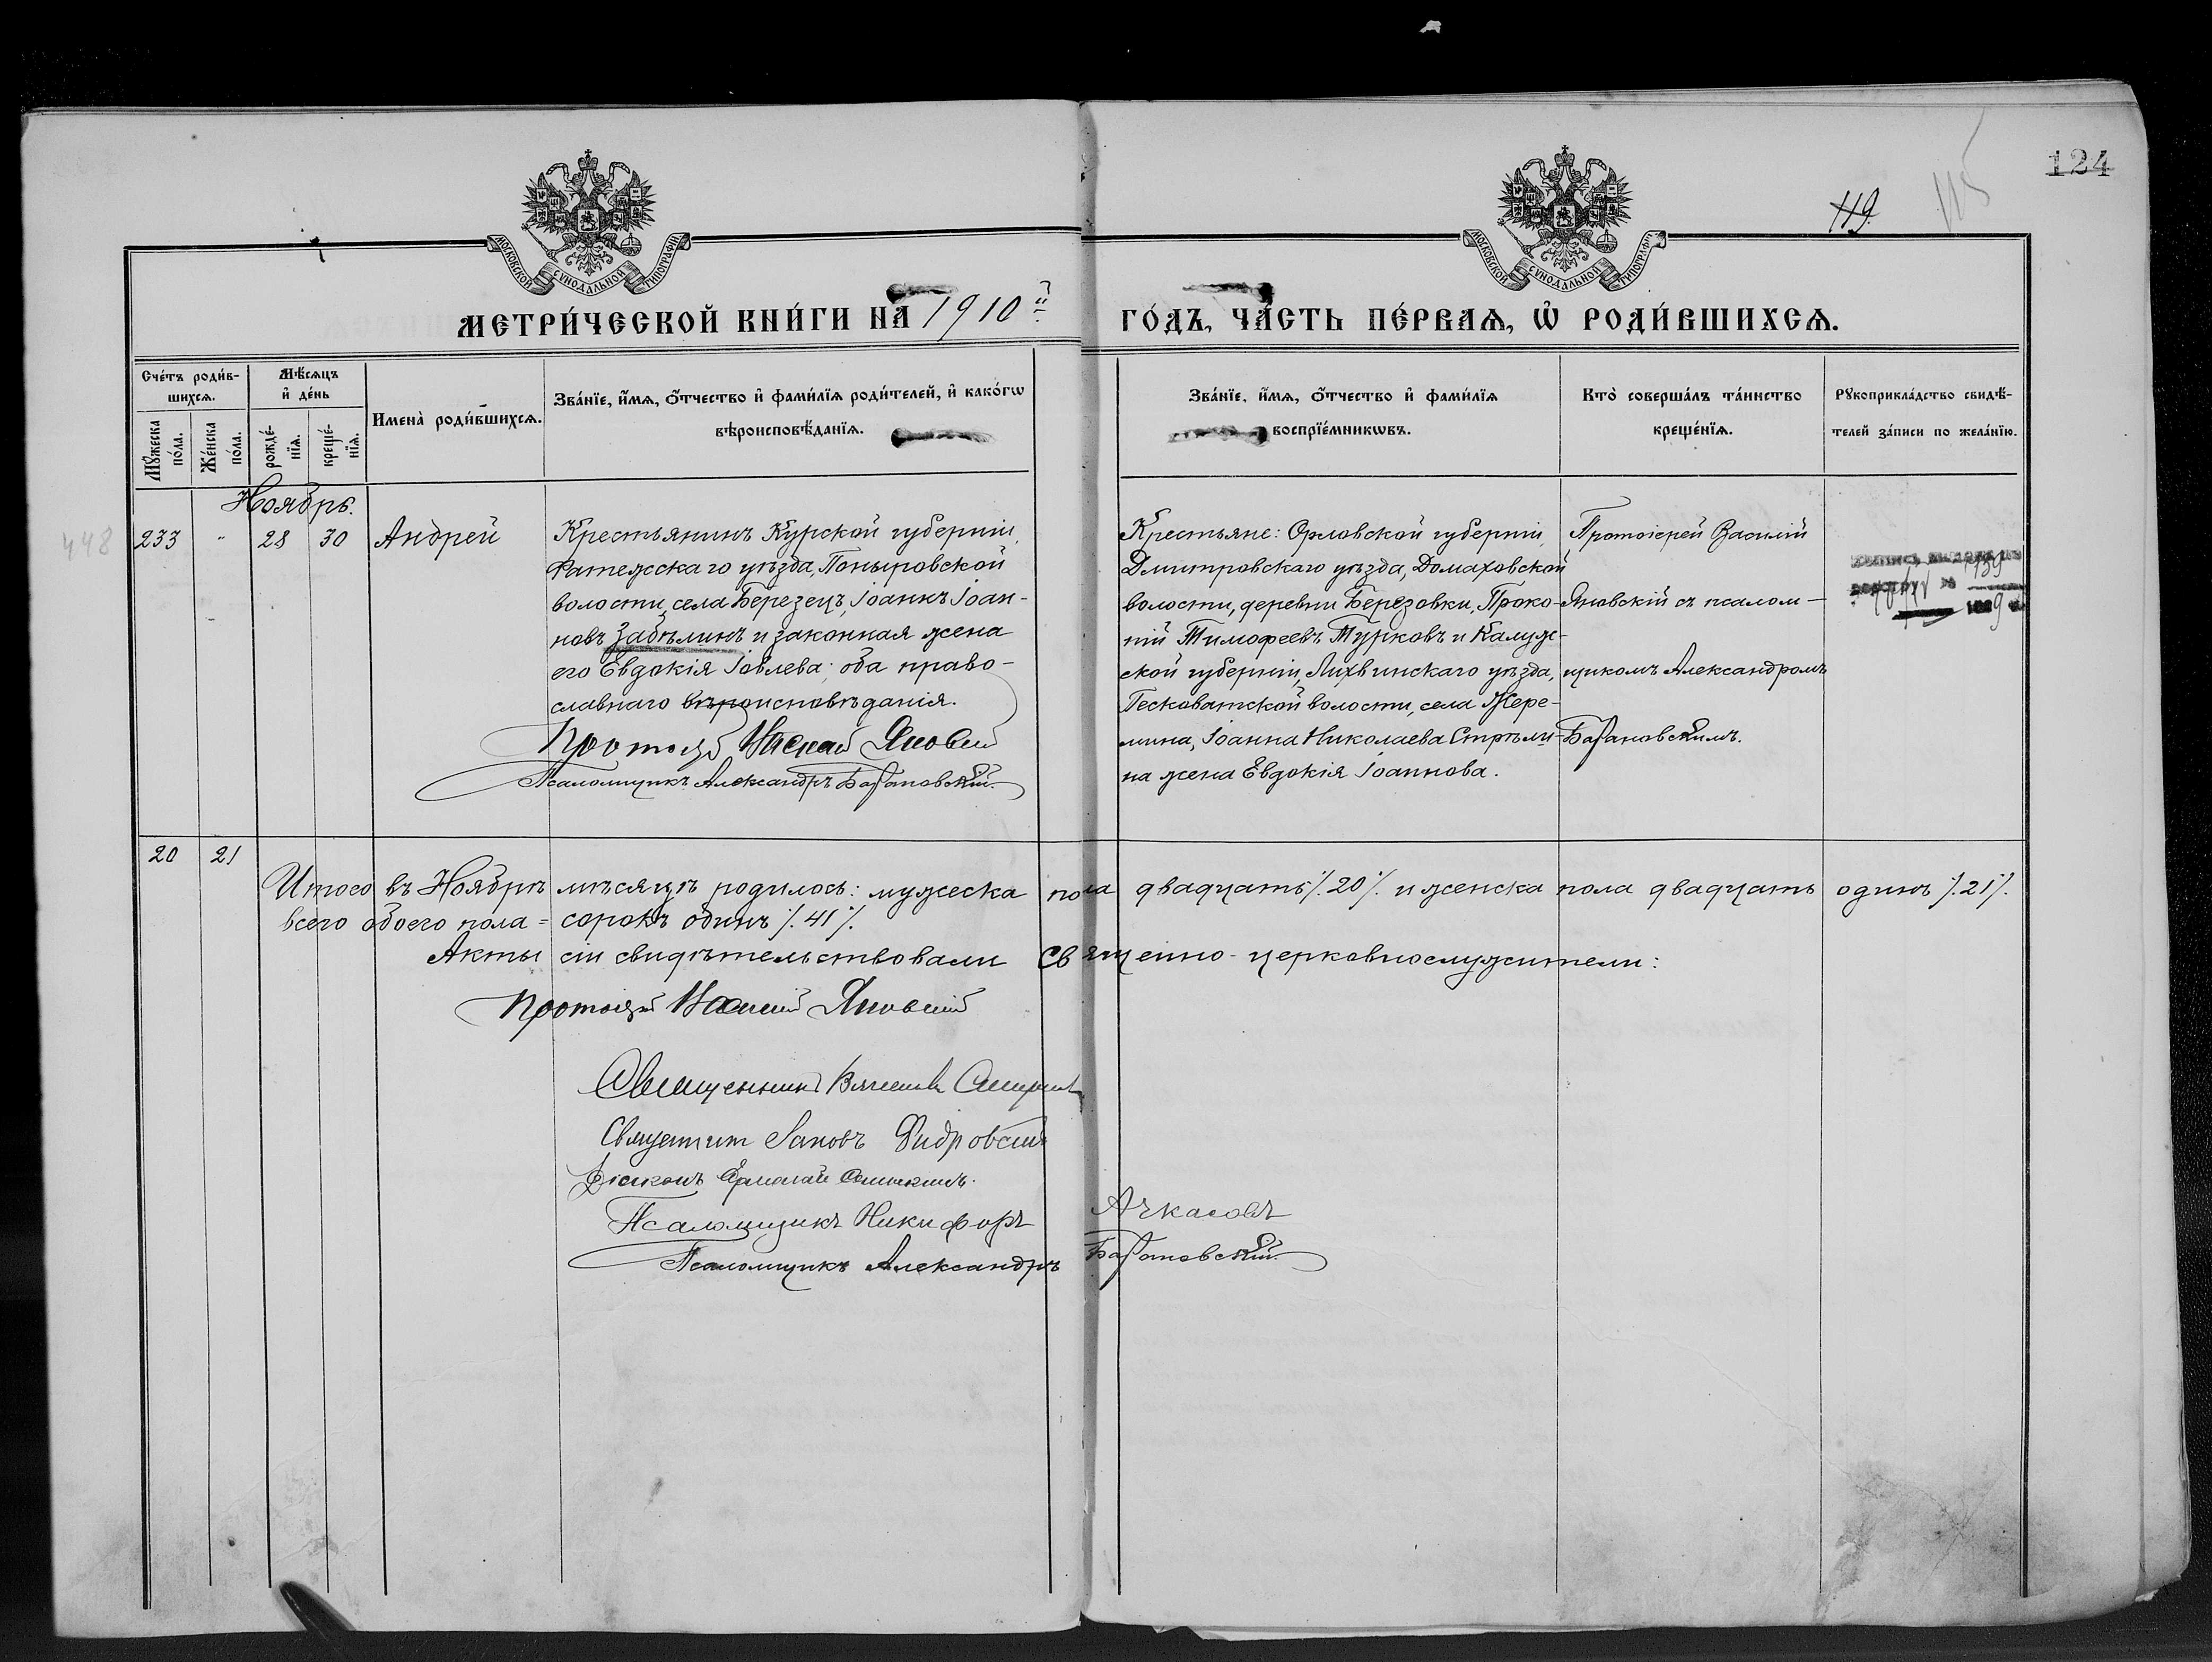 124
119.
115
МОСКОВСКОЙ СѴНОДАЛЬНОЙ ТИПОГРАФІИ
МОСКОВСКОЙ СѴНОДАЛЬНОЙ ТИПОГРАФІИ
МЕТРИ́ЧЕСКОЙ КНИ́ГИ НА 1910й ГО́ДЪ, ЧА́СТЬ ПЕ́РВАѦ, Ѡ҆ РОДИ́ВШИХСѦ.
Сче́тъ роди́вшихсѧ.
Мꙋ́жеска по́ла.
Же́нска по́ла.
Мѣ́сѧцъ и҆ де́нь
рожде́нїѧ.
креще́нїѧ.
Имена̀ роди́вшихсѧ.
Зва́нїе, и҆́мѧ, ѻ҆́тчество и҆ фами́лїѧ роди́телей, и҆ како́гѡ
вѣроисповѣ́данїѧ.
Зва́нїе, и҆́мѧ, ѻ҆́тчество и҆ фами́лїѧ
воспрїе́мникѡвъ.
Кто̀ соверша́лъ та́инство
креще́нїѧ.
Рꙋкоприкла́дство свидѣ́телей за́писи по жела́нїю.
Ноябрь.
448
233 " 28 30 Андрей
Крестьянинъ Курской губерніи,
Фатежскаго уѣзда, Поныровской
волости, села Березецъ, Іоаннъ Іоан-
новъ Забѣлинъ и законная жена
его Евдокія Іовлева; оба право-
славнаго вѣроисповѣданія.
Протоіерей Василій Яновскій
Псаломщикъ Александръ Барановскій.
Крестьяне: Орловской губерніи,
Дмитровскаго уѣзда, Домаховской
волости, деревни Березовки, Проко-
пій Тимофеевъ Турковъ и Калуж-
ской губерніи, Лихвинскаго уѣзда,
Песковатской волости, села Жере-
мина, Іоанна Николаева Стрѣли-
на жена Евдокія Іоаннова.
Протоіерей Василій
Яновскій съ псалом-
щикомъ Александромъ
Барановскимъ.
20 21
Итого въ Ноябрѣ мѣсяцѣ родилось: мужеска пола двадцать ./. 20 ./. и женска пола двадцать одинъ ./. 21 ./.
всего обоего пола = сорокъ одинъ ./. 41 ./.
Акты сіи свидѣтельствовали Священно-церковнослужители:
Протоіерей Василій Яновскій
Священникъ
Священникъ Іаковъ
Діаконъ
Псаломщикъ Никифоръ Ачкасовъ
Псаломщикъ Александръ Барановскій.